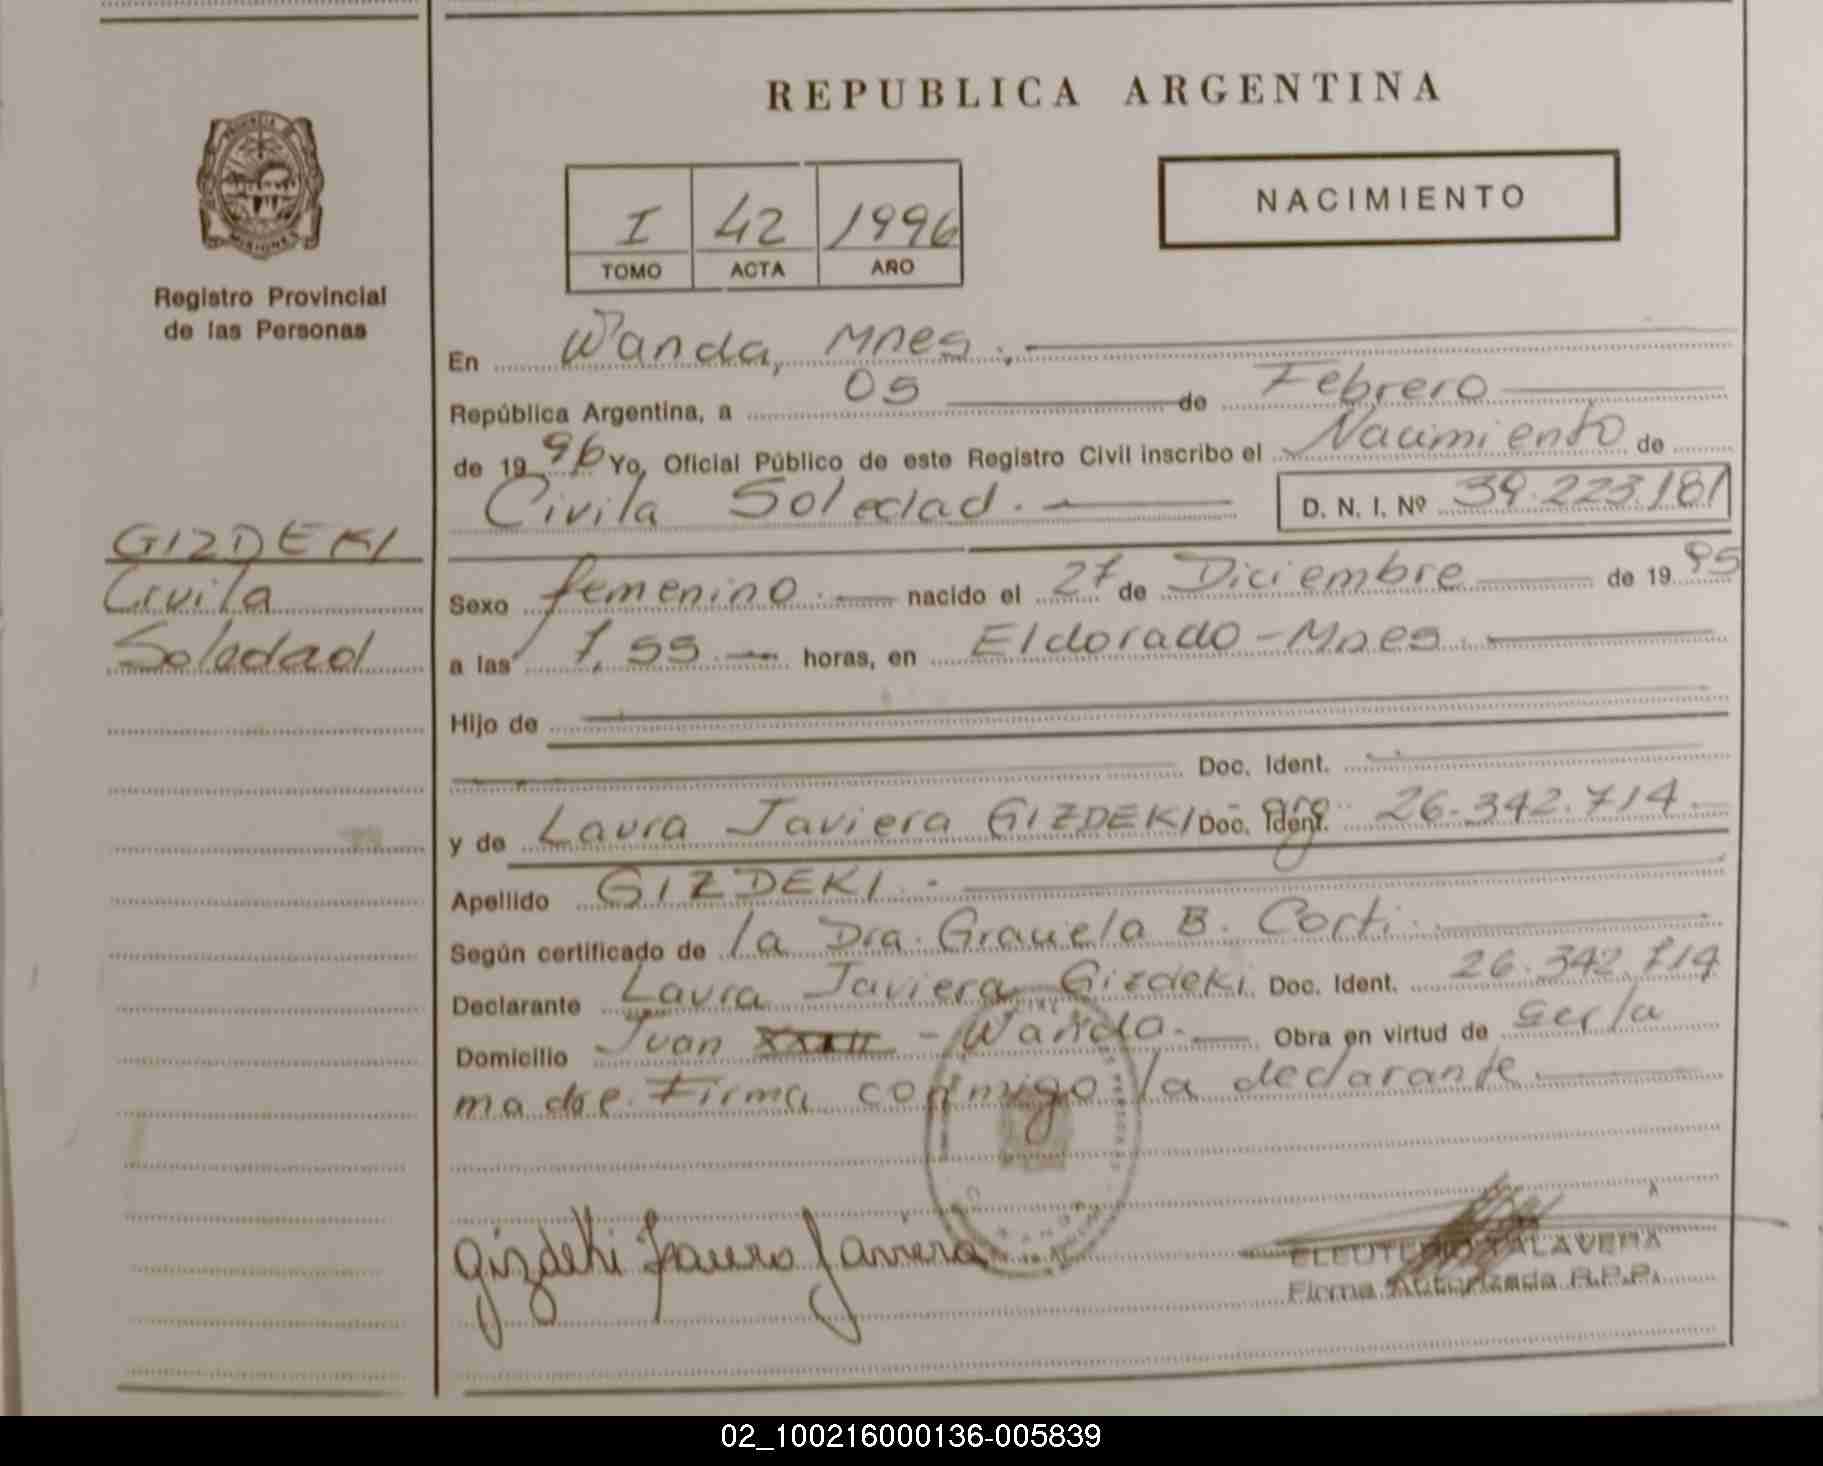 REPUBLICA ARGENTINA
I 42 1996
TOMO ACTA AÑO
NACIMIENTO
PROVINCIA DE
MISIONES
Registro Provincial
de las Personas
GIZDEKI
Civila
Soledad
En Wanda, Mnes.
República Argentina, a 05 de Febrero
de 1996 Yo, Oficial Público de este Registro Civil inscribo el Nacimiento de
Civila Soledad. D. N. I. Nº 39.223.181
Sexo femenino. nacido el 27 de Diciembre de 1995
a las 7,55 horas, en Eldorado - Mnes.
Hijo de
Doc. Ident.
y de Laura Javiera GIZDEKI Doc. Ident. arg 26.342.714
Apellido GIZDEKI.
Según certificado de la Dra. Graciela B. Corti.
Declarante Laura Javiera Gizdeki Doc. Ident. 26.342.714
Domicilio Juan - Wanda. Obra en virtud de ser la
madre. Firma conmigo la declarante
Gizdeki Laura Javiera
ELEUTERIO TALAVERA
Firma Autorizada R.P.P.
02_100216000136-005839